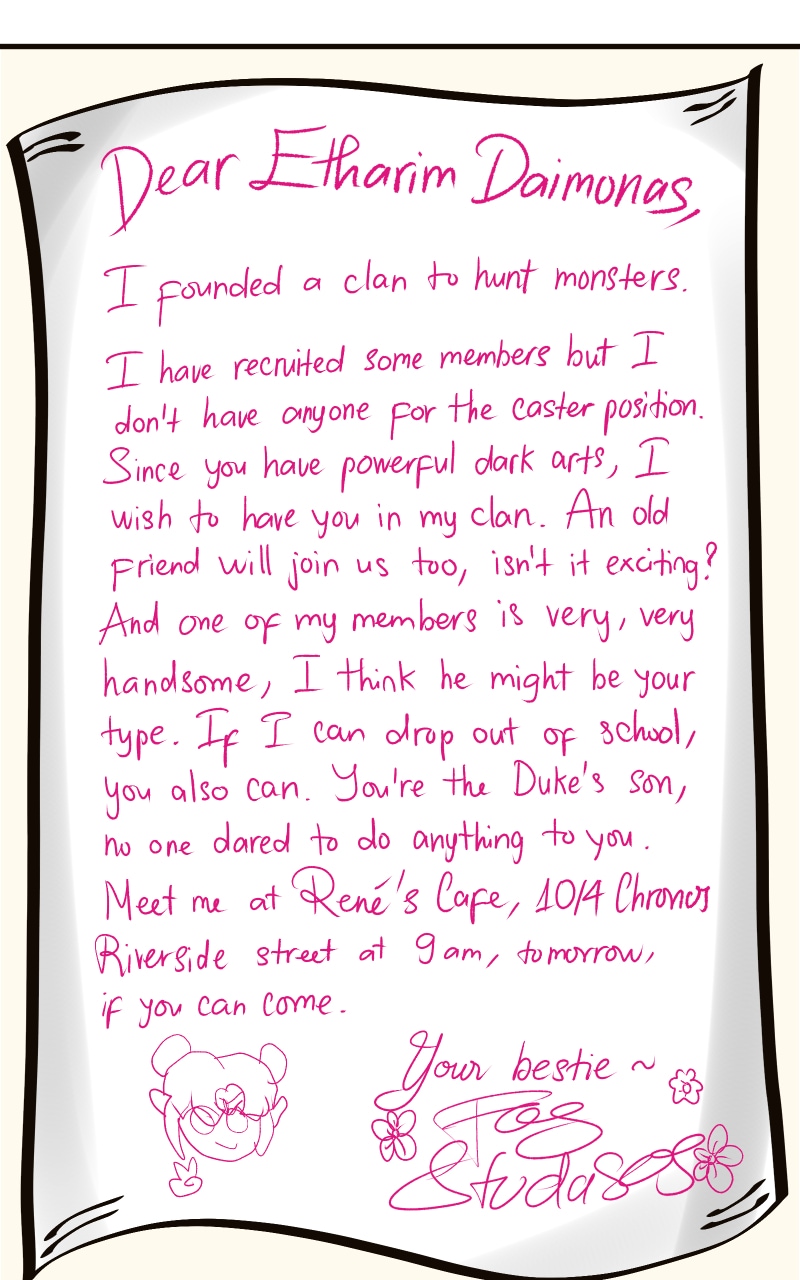 Dear Etharim Daimonas,
I founded a clan to hunt monsters.
I have recruited some members but I
don't have anyone for the caster position.
Since you have powerful dark arts, I
wish to have you in my clan. An old
friend will join us too, isn't it exciting?
And one of my members is very, very
handsome, I think he might be your
type. If I can drop out of school,
you also can. You're the Duke's son,
no one dared to do anything to you.
Meet me at René's Cafe, 10/4 Chronos
Riverside street at 9am, tomorrow,
if you can come.
Your bestie ~
Studasos